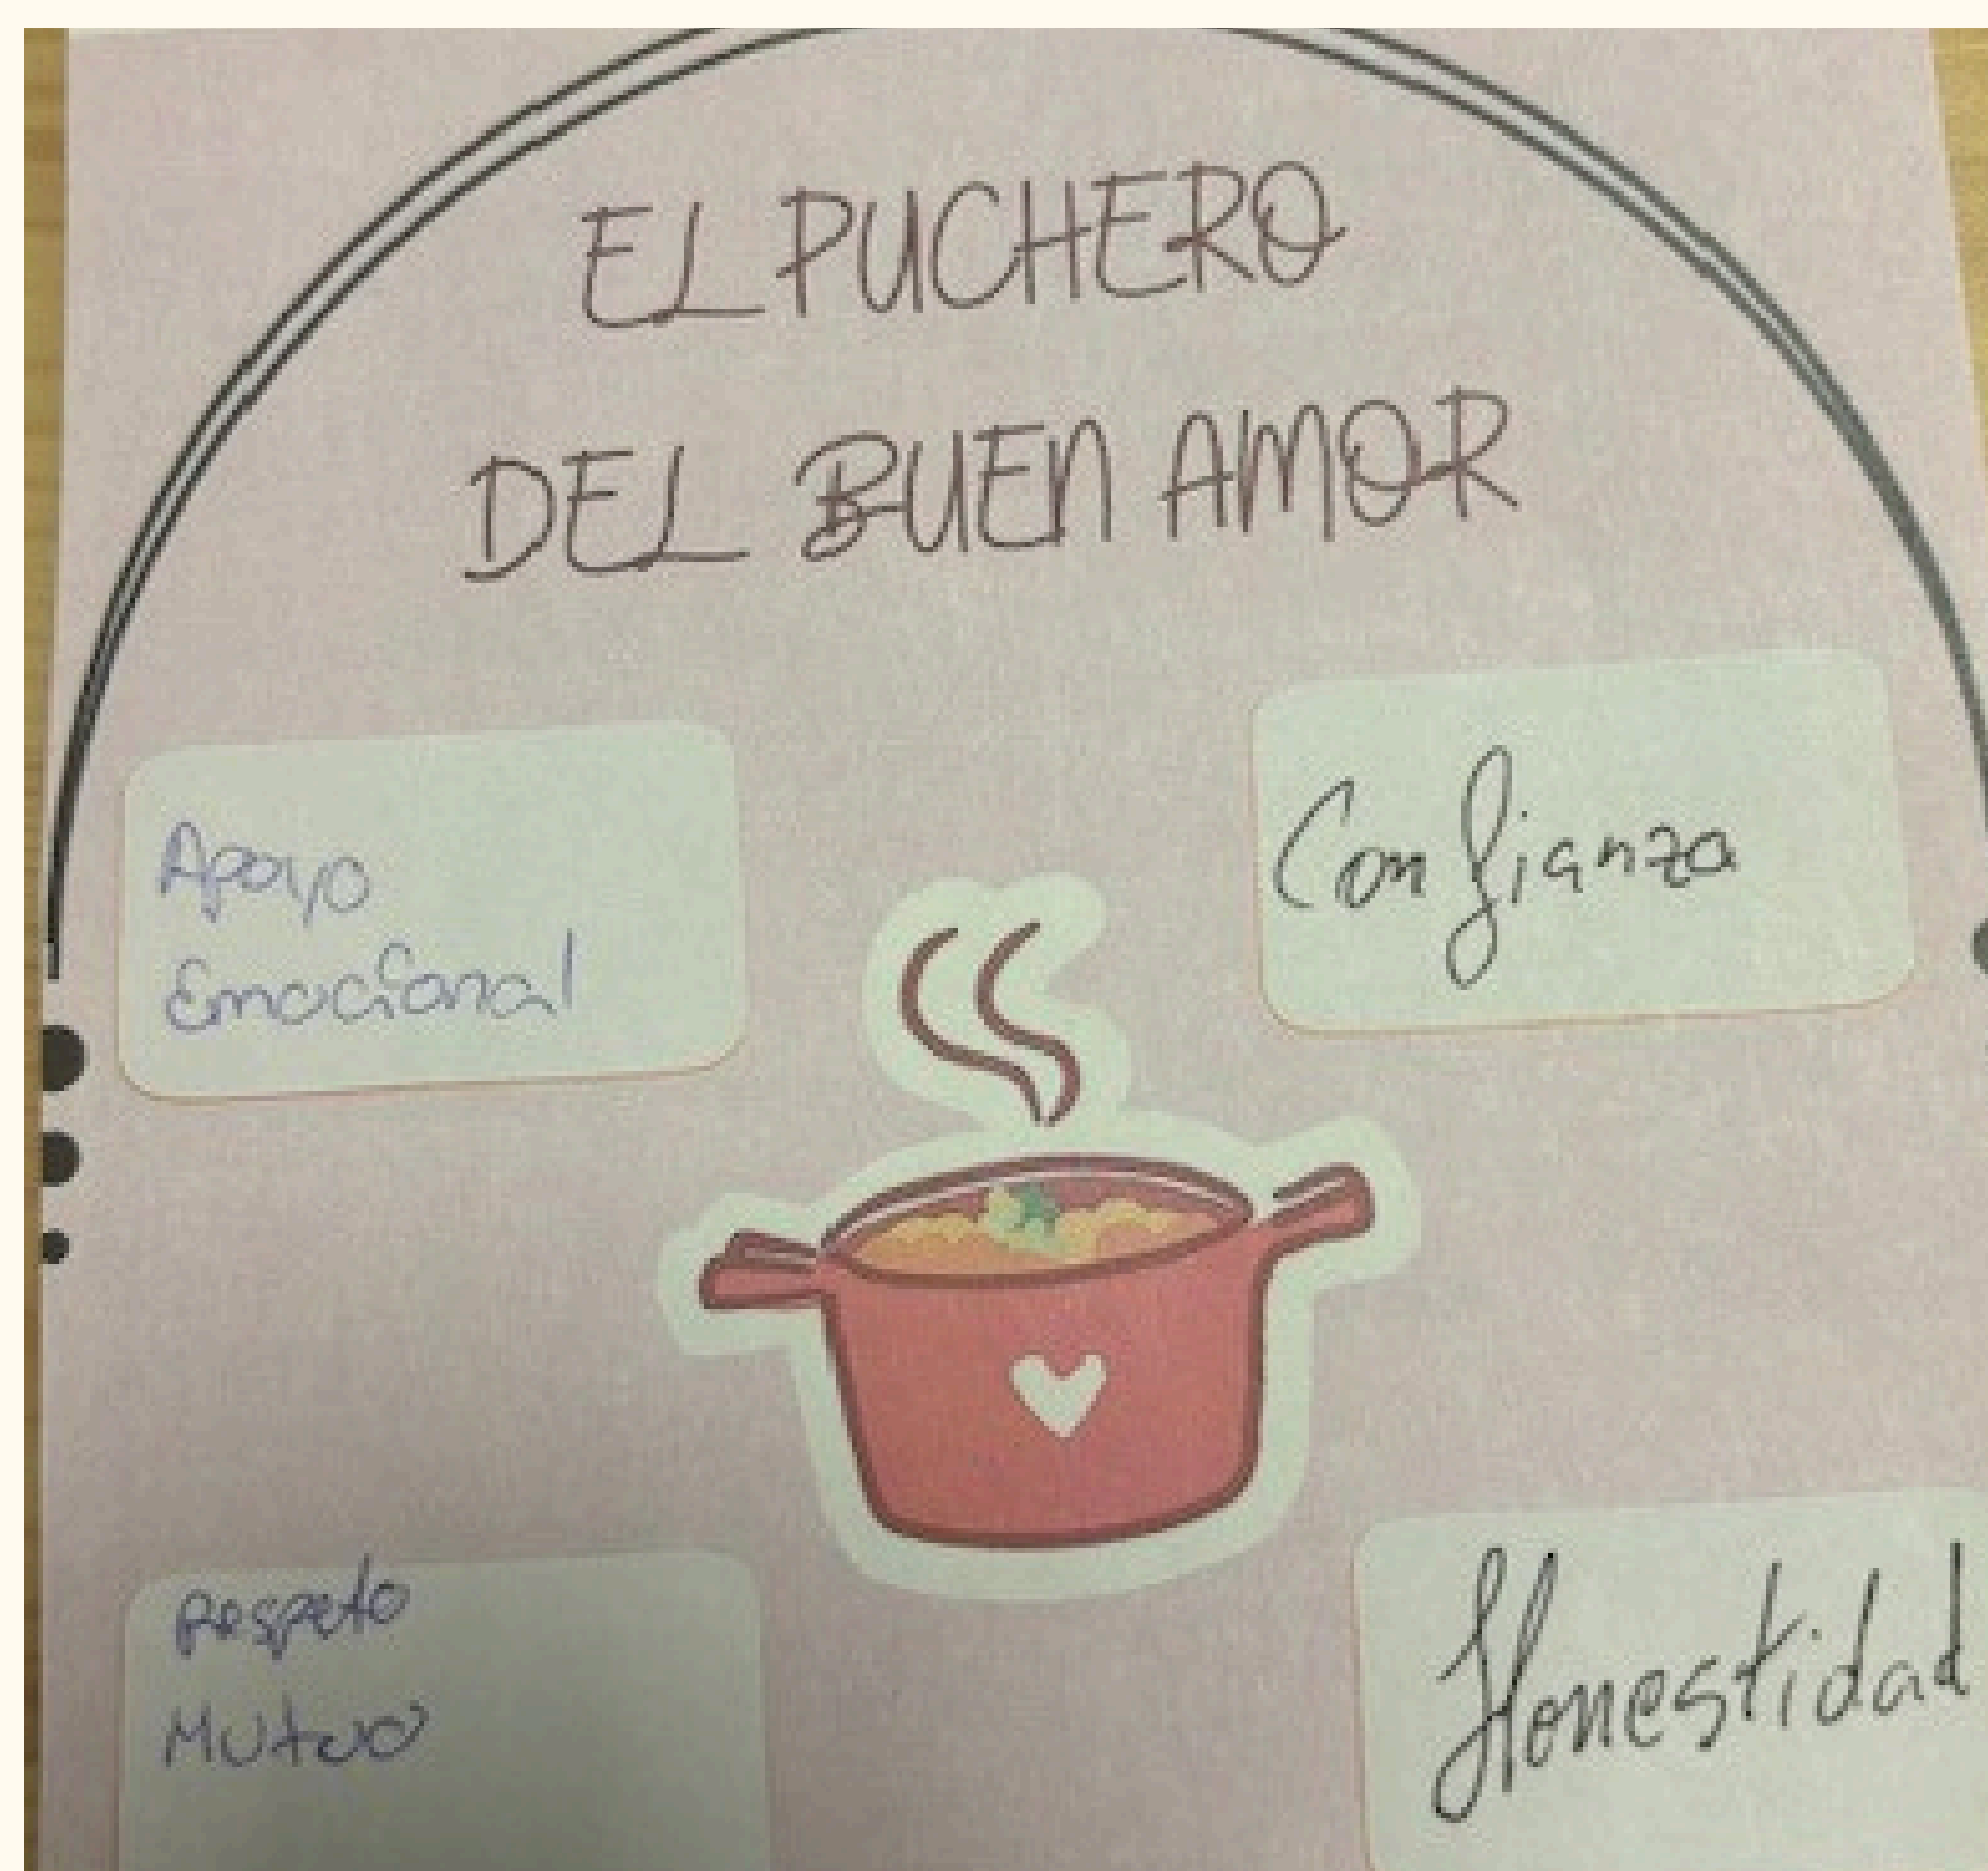 EL PUCHERO
DEL BUEN AMOR
Apoyo
Emocional
Confianza
Respeto
Mutuo
Honestidad